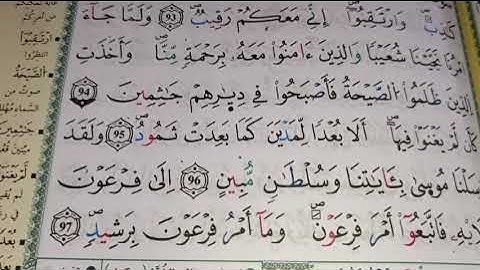 كَٰذِبٌ ۖ وَٱرْتَقِبُوٓا۟ إِنِّى مَعَكُمْ رَقِيبٌ ۝93 وَلَمَّا جَآءَ
مْرُنَا نَجَّيْنَا شُعَيْبًا وَٱلَّذِينَ ءَامَنُوا۟ مَعَهُۥ بِرَحْمَةٍ مِّنَّا وَأَخَذَتِ
ٱلَّذِينَ ظَلَمُوا۟ ٱلصَّيْحَةُ فَأَصْبَحُوا۟ فِى دِيَٰرِهِمْ جَٰثِمِينَ ۝94
كَأَن لَّمْ يَغْنَوْا۟ فِيهَآ ۗ أَلَا بُعْدًا لِّمَدْيَنَ كَمَا بَعِدَتْ ثَمُودُ ۝95 وَلَقَدْ
سَلْنَا مُوسَىٰ بِـَٔايَٰتِنَا وَسُلْطَٰنٍ مُّبِينٍ ۝96 إِلَىٰ فِرْعَوْنَ
لَإِي۟هِۦ فَٱتَّبَعُوٓا۟ أَمْرَ فِرْعَوْنَ ۖ وَمَآ أَمْرُ فِرْعَوْنَ بِرَشِيدٍ ۝97
ارْتَقِبُوا
انتظروا
الصَّيْحَةُ
صوت من
السماء
جَاثِمِينَ